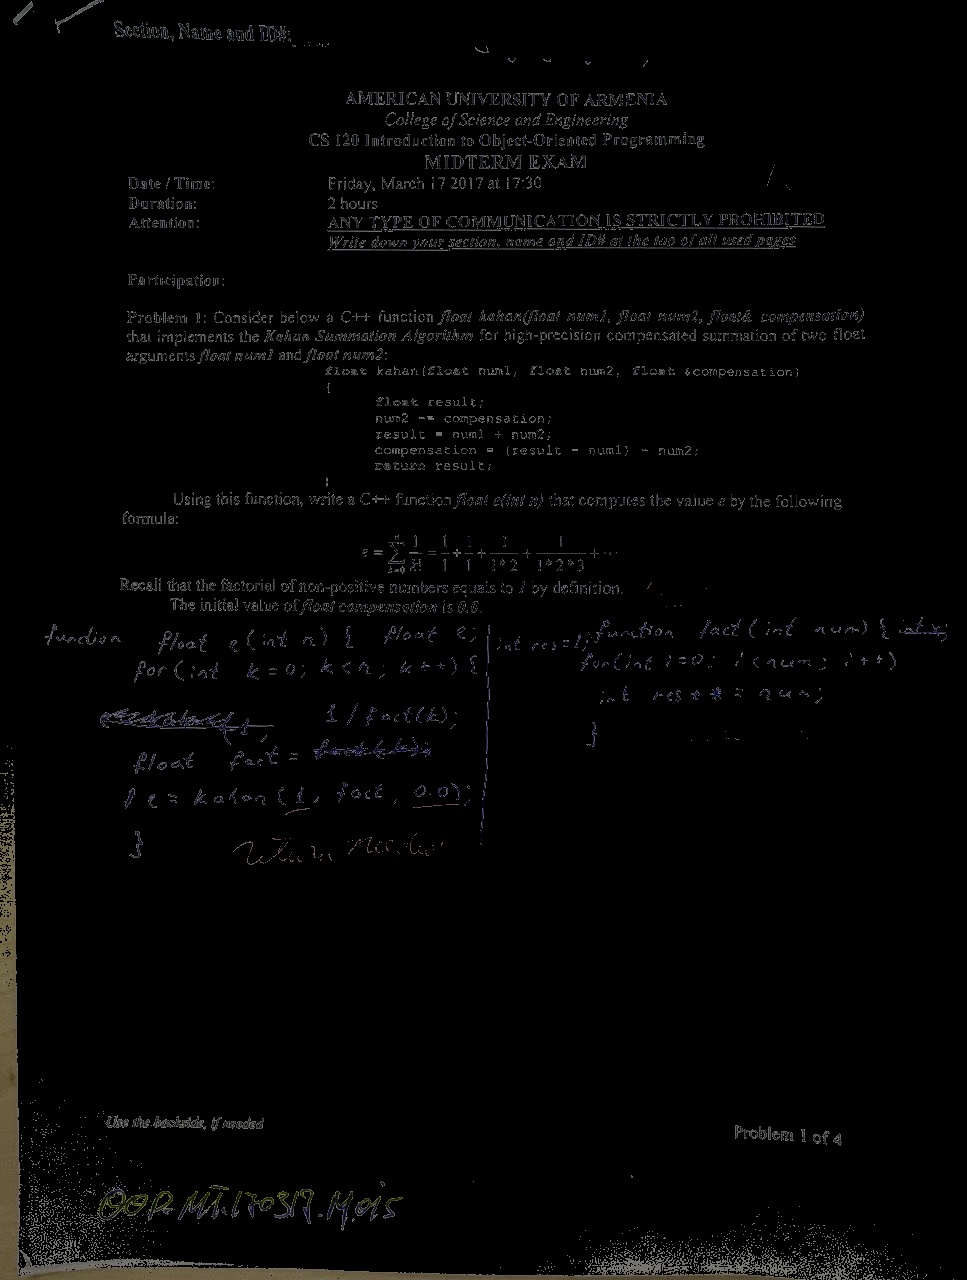 Section, Name and ID#:
AMERICAN UNIVERSITY OF ARMENIA
College of Science and Engineering
CS 120 Introduction to Object-Oriented Programming
MIDTERM EXAM
Date / Time: Friday, March 17 2017 at 17:30
Duration: 2 hours
Attention: ANY TYPE OF COMMUNICATION IS STRICTLY PROHIBITED
Write down your section, name and ID# at the top of all used pages
Participation:
Problem 1: Consider below a C++ function float kahan(float num1, float num2, float& compensation)
that implements the Kahan Summation Algorithm for high-precision compensated summation of two float
arguments float num1 and float num2:
float kahan(float num1, float num2, float &compensation)
{
float result;
num2 -= compensation;
result = num1 + num2;
compensation = (result - num1) - num2;
return result;
}
Using this function, write a C++ function float e(int n) that computes the value e by the following
formula:
e = n∑k=0 1/k! = 1/1 + 1/1 + 1/1*2 + 1/1*2*3 + ···
Recall that the factorial of non-positive numbers equals to 1 by definition.
The initial value of float compensation is 0.0.
function float e(int n) { float e;
for(int k=0; k<n; k++) {
1/fact(k);
float fact =
e = kahan(1, fact, 0.0);
}
return
int res=1; function fact(int num) {
for(int i=0; i<num; i++)
int res * = num;
}
Use the backside, if needed
Problem 1 of 4
OOP.MT.170317.M.015